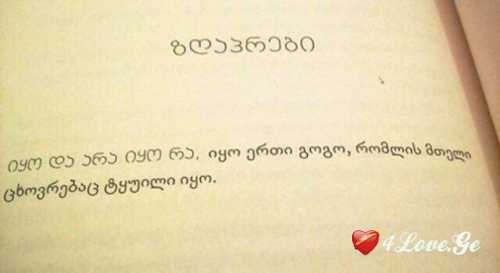 ზღაპრები
იყო და არა იყო რა, იყო ერთი გოგო, რომლის მთელი
ცხოვრებაც ტყუილი იყო.
4Love.Ge